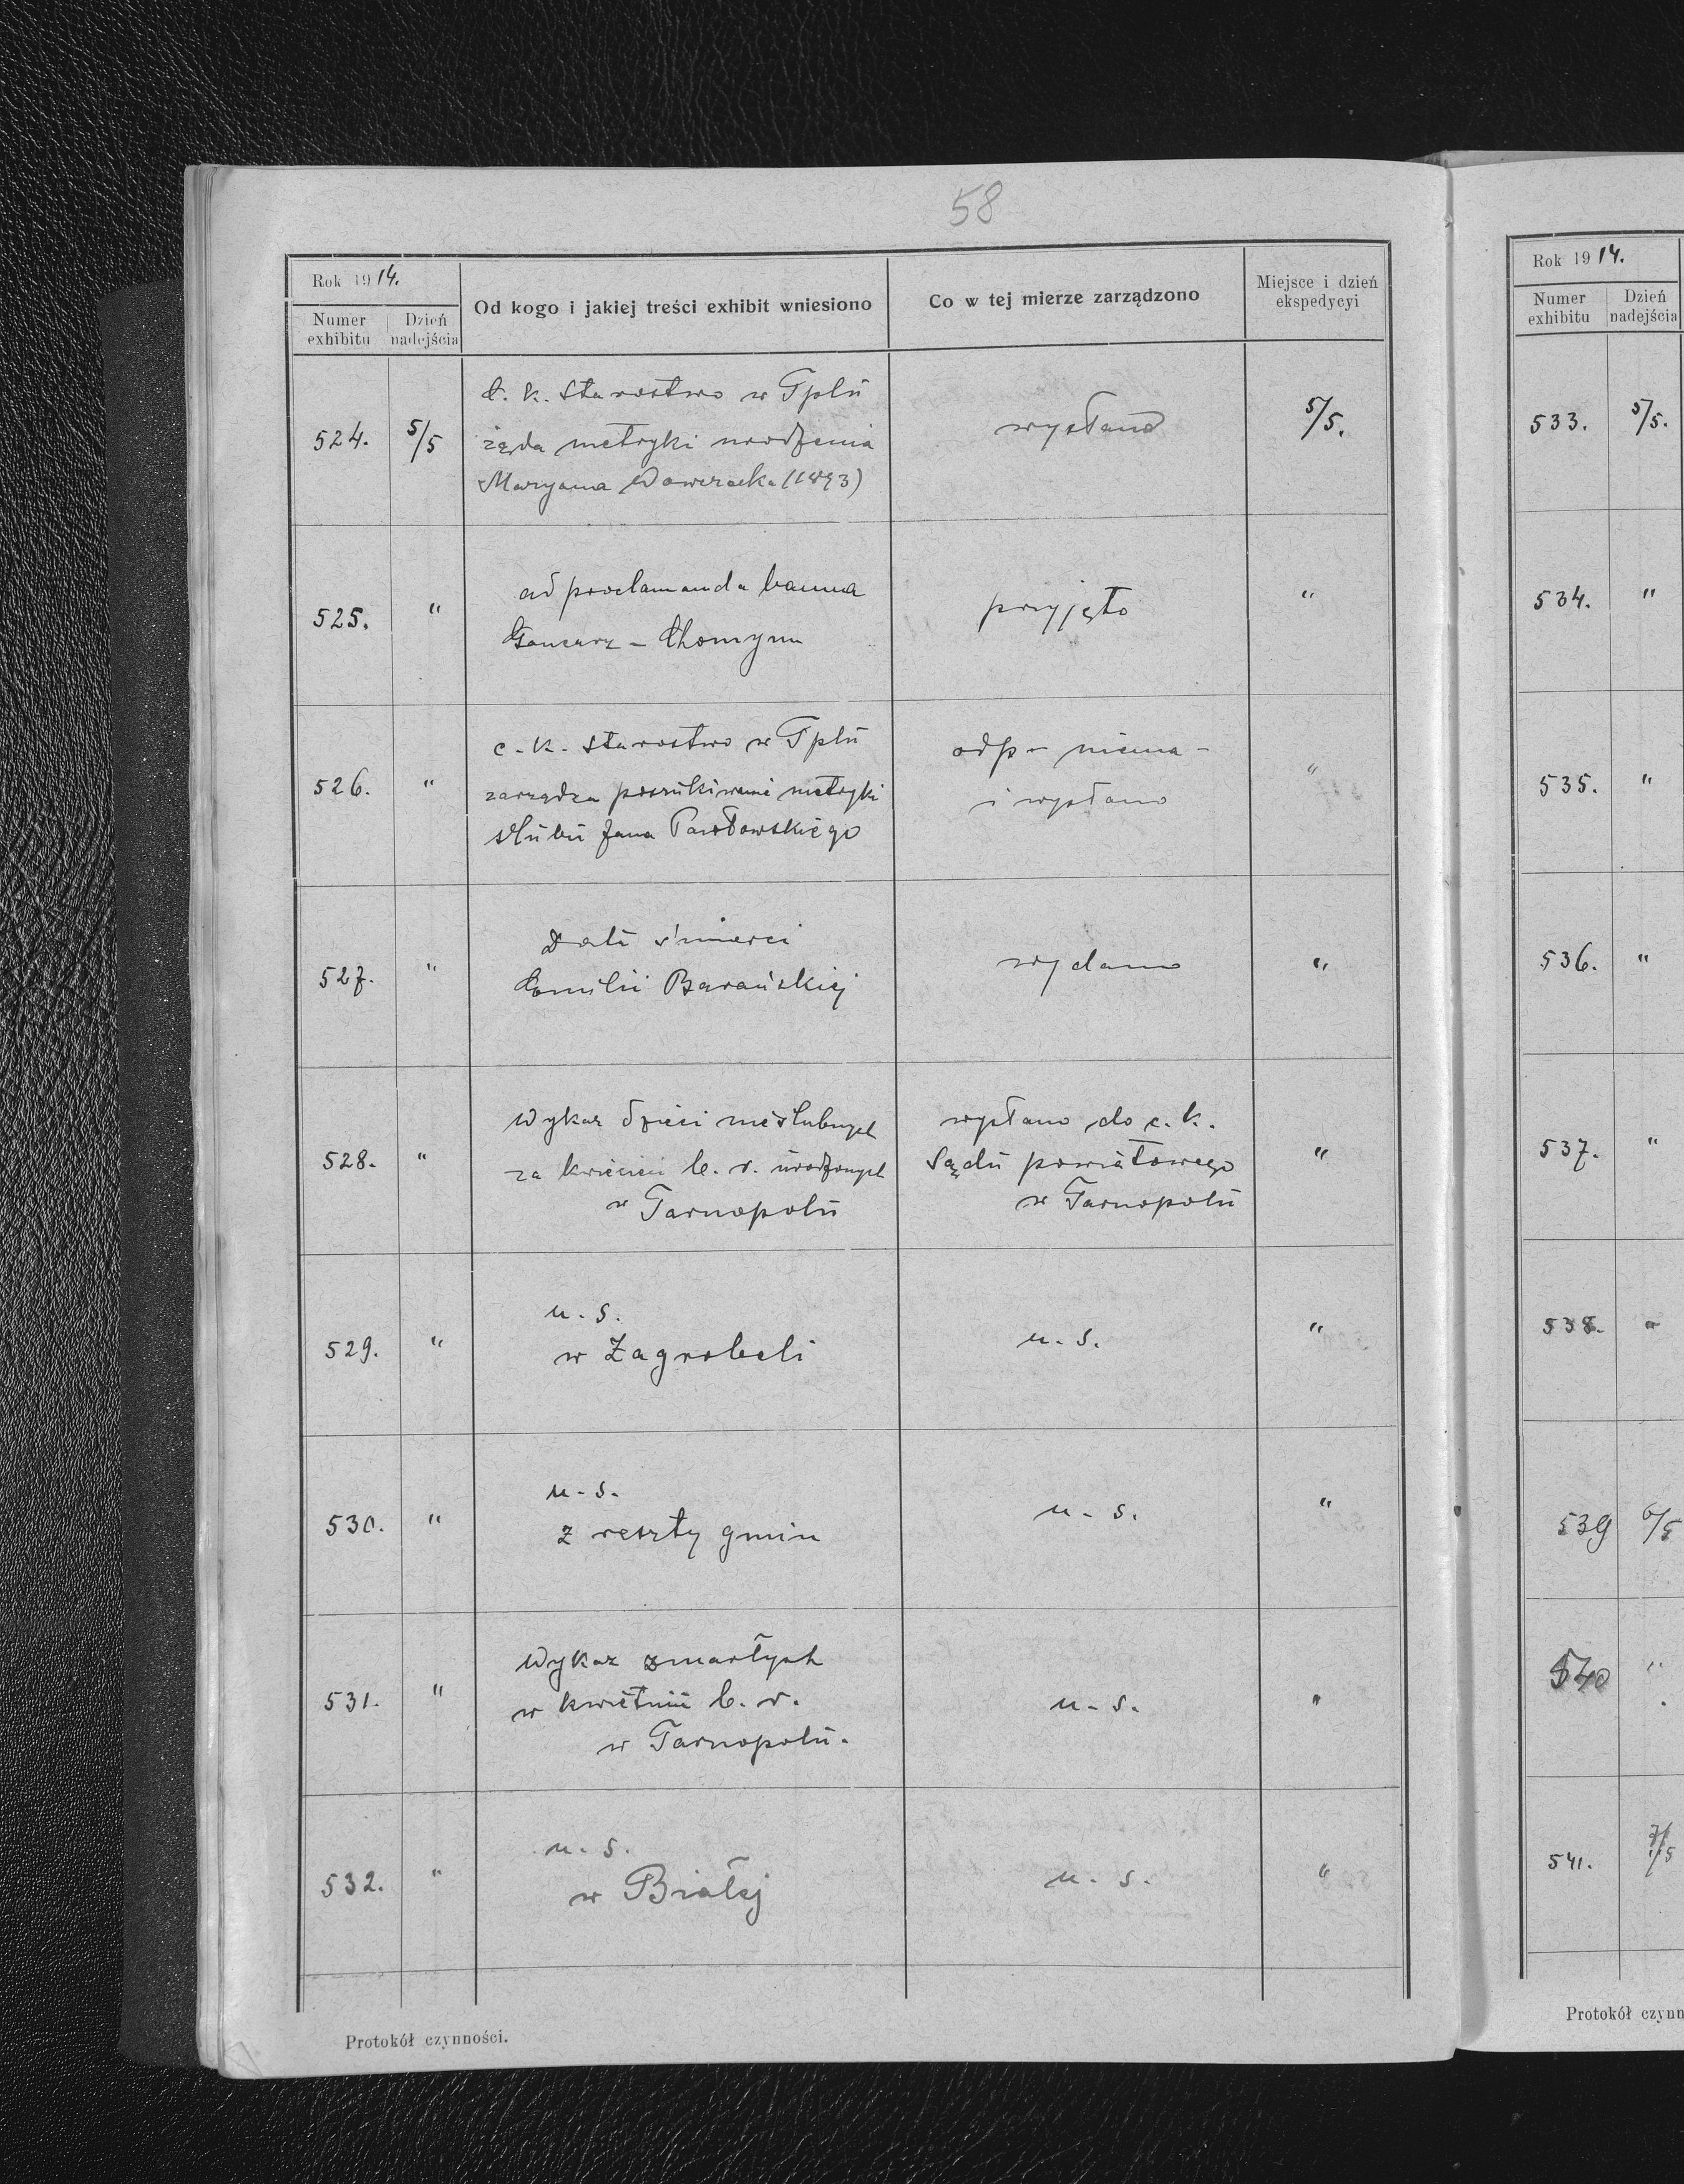 58
Rok 1914.
Numer exhibitu
Dzień nadejścia
Od kogo i jakiej treści exhibit wniesiono
Co w tej mierze zarządzono
Miejsce i dzień ekspedycyi
524. 5/5
C. k. Starostwo w Tplu
żąda metryki urodzenia
Maryana (1893)
wysłano
5/5.
525. "
ad proclamanda banna
Gancarz - Chomyn
przyjęto
"
526. "
c. k. Starostwo w Tplu
zarządza poszukiwanie metryki
ślubu Jana Pawłowskiego
odp - niema -
i wysłano
"
527. "
Data śmierci
Emilii Barańskiej
wydano
"
528. "
Wykaz dzieci nieślubnych
za kwiecień b. r. urodzonych
w Tarnopolu
wysłano do c. k.
Sądu powiatowego
w Tarnopolu
"
529. "
u. s.
w Zagrobeli
u. s.
"
530. "
u. s.
z reszty gmin
u. s.
"
531. "
Wykaz zmarłych
w kwietniu b. r.
w Tarnopolu.
u. s.
"
532. "
u. s.
w Białej
u. s.
"
Protokół czynności.
Rok 1914.
Numer exhibitu
Dzień nadejścia
533. 5/5.
534. "
535. "
536. "
537. "
538. "
539 6/5
540 "
541. 7/5
Protokół czynn